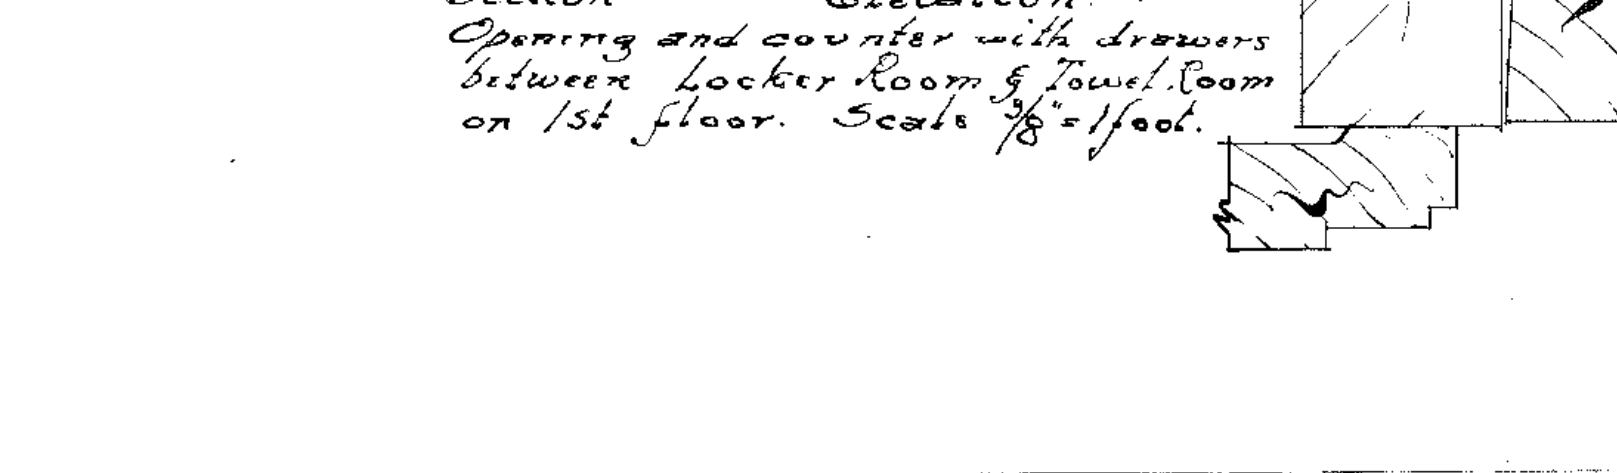 Section Elevation.
Opening and counter with drawers
between Locker Room & Towel Room
on 1st floor. Scale 3/8" = 1 foot.